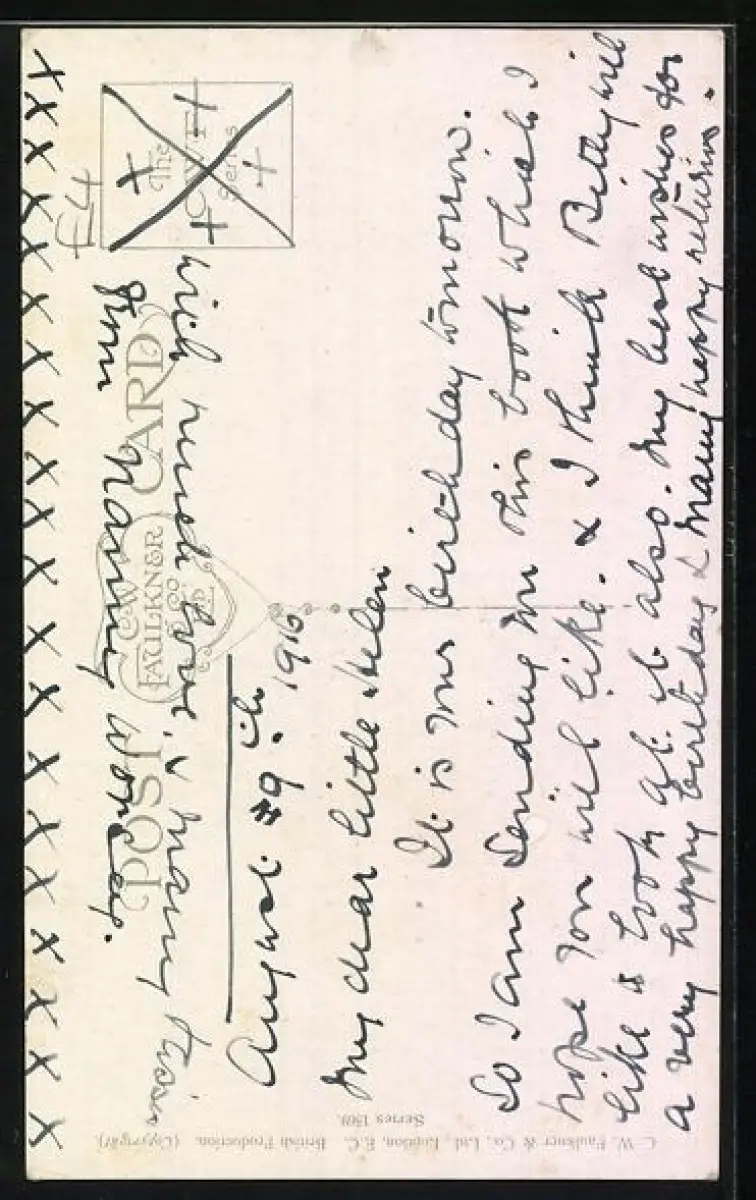 POST CARD
C.W. FAULKNER
& CO
LTD
The
C.W.F.
Series
£4
August 9th. 1916
My dear little Helen
It is your birthday tomorrow.
So I am sending you this book which I
hope you will like. & I think Betty will
like to look at it also. My best wishes for
a very happy birthday & many happy returns.
With much love, & many kisses
from Nanny
C. W. Faulkner & Co., Ltd., London, E.C. British Production. (Copyright).
Series 1569.
X X X X X X X X X X X X X X X X X X X